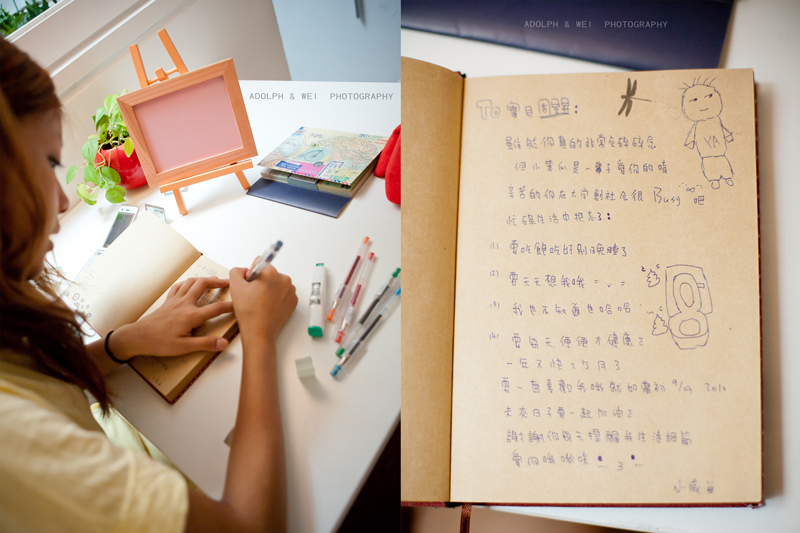 ADOLPH & WEI PHOTOGRAPHY
ADOLPH & WEI PHOTOGRAPHY
To
YA
雖然你真的非常会碎碎念
但小笨
是一輩子愛你的唷
辛苦的你在大
創社会很 Busy 吧
忙碌生活中
忘了:
(1) 要吃飽吃好別晚睡了
(2) 要天天想我哦 = v =
(3) 我也不知道也哈哈
(4) 要每天便便才健康
一年又快
個月了
要一直喜歡我哦就如
初 9/19 2010
未來日子要一起加油
謝謝你每天提醒我生活細節
愛你哦啾咪 3